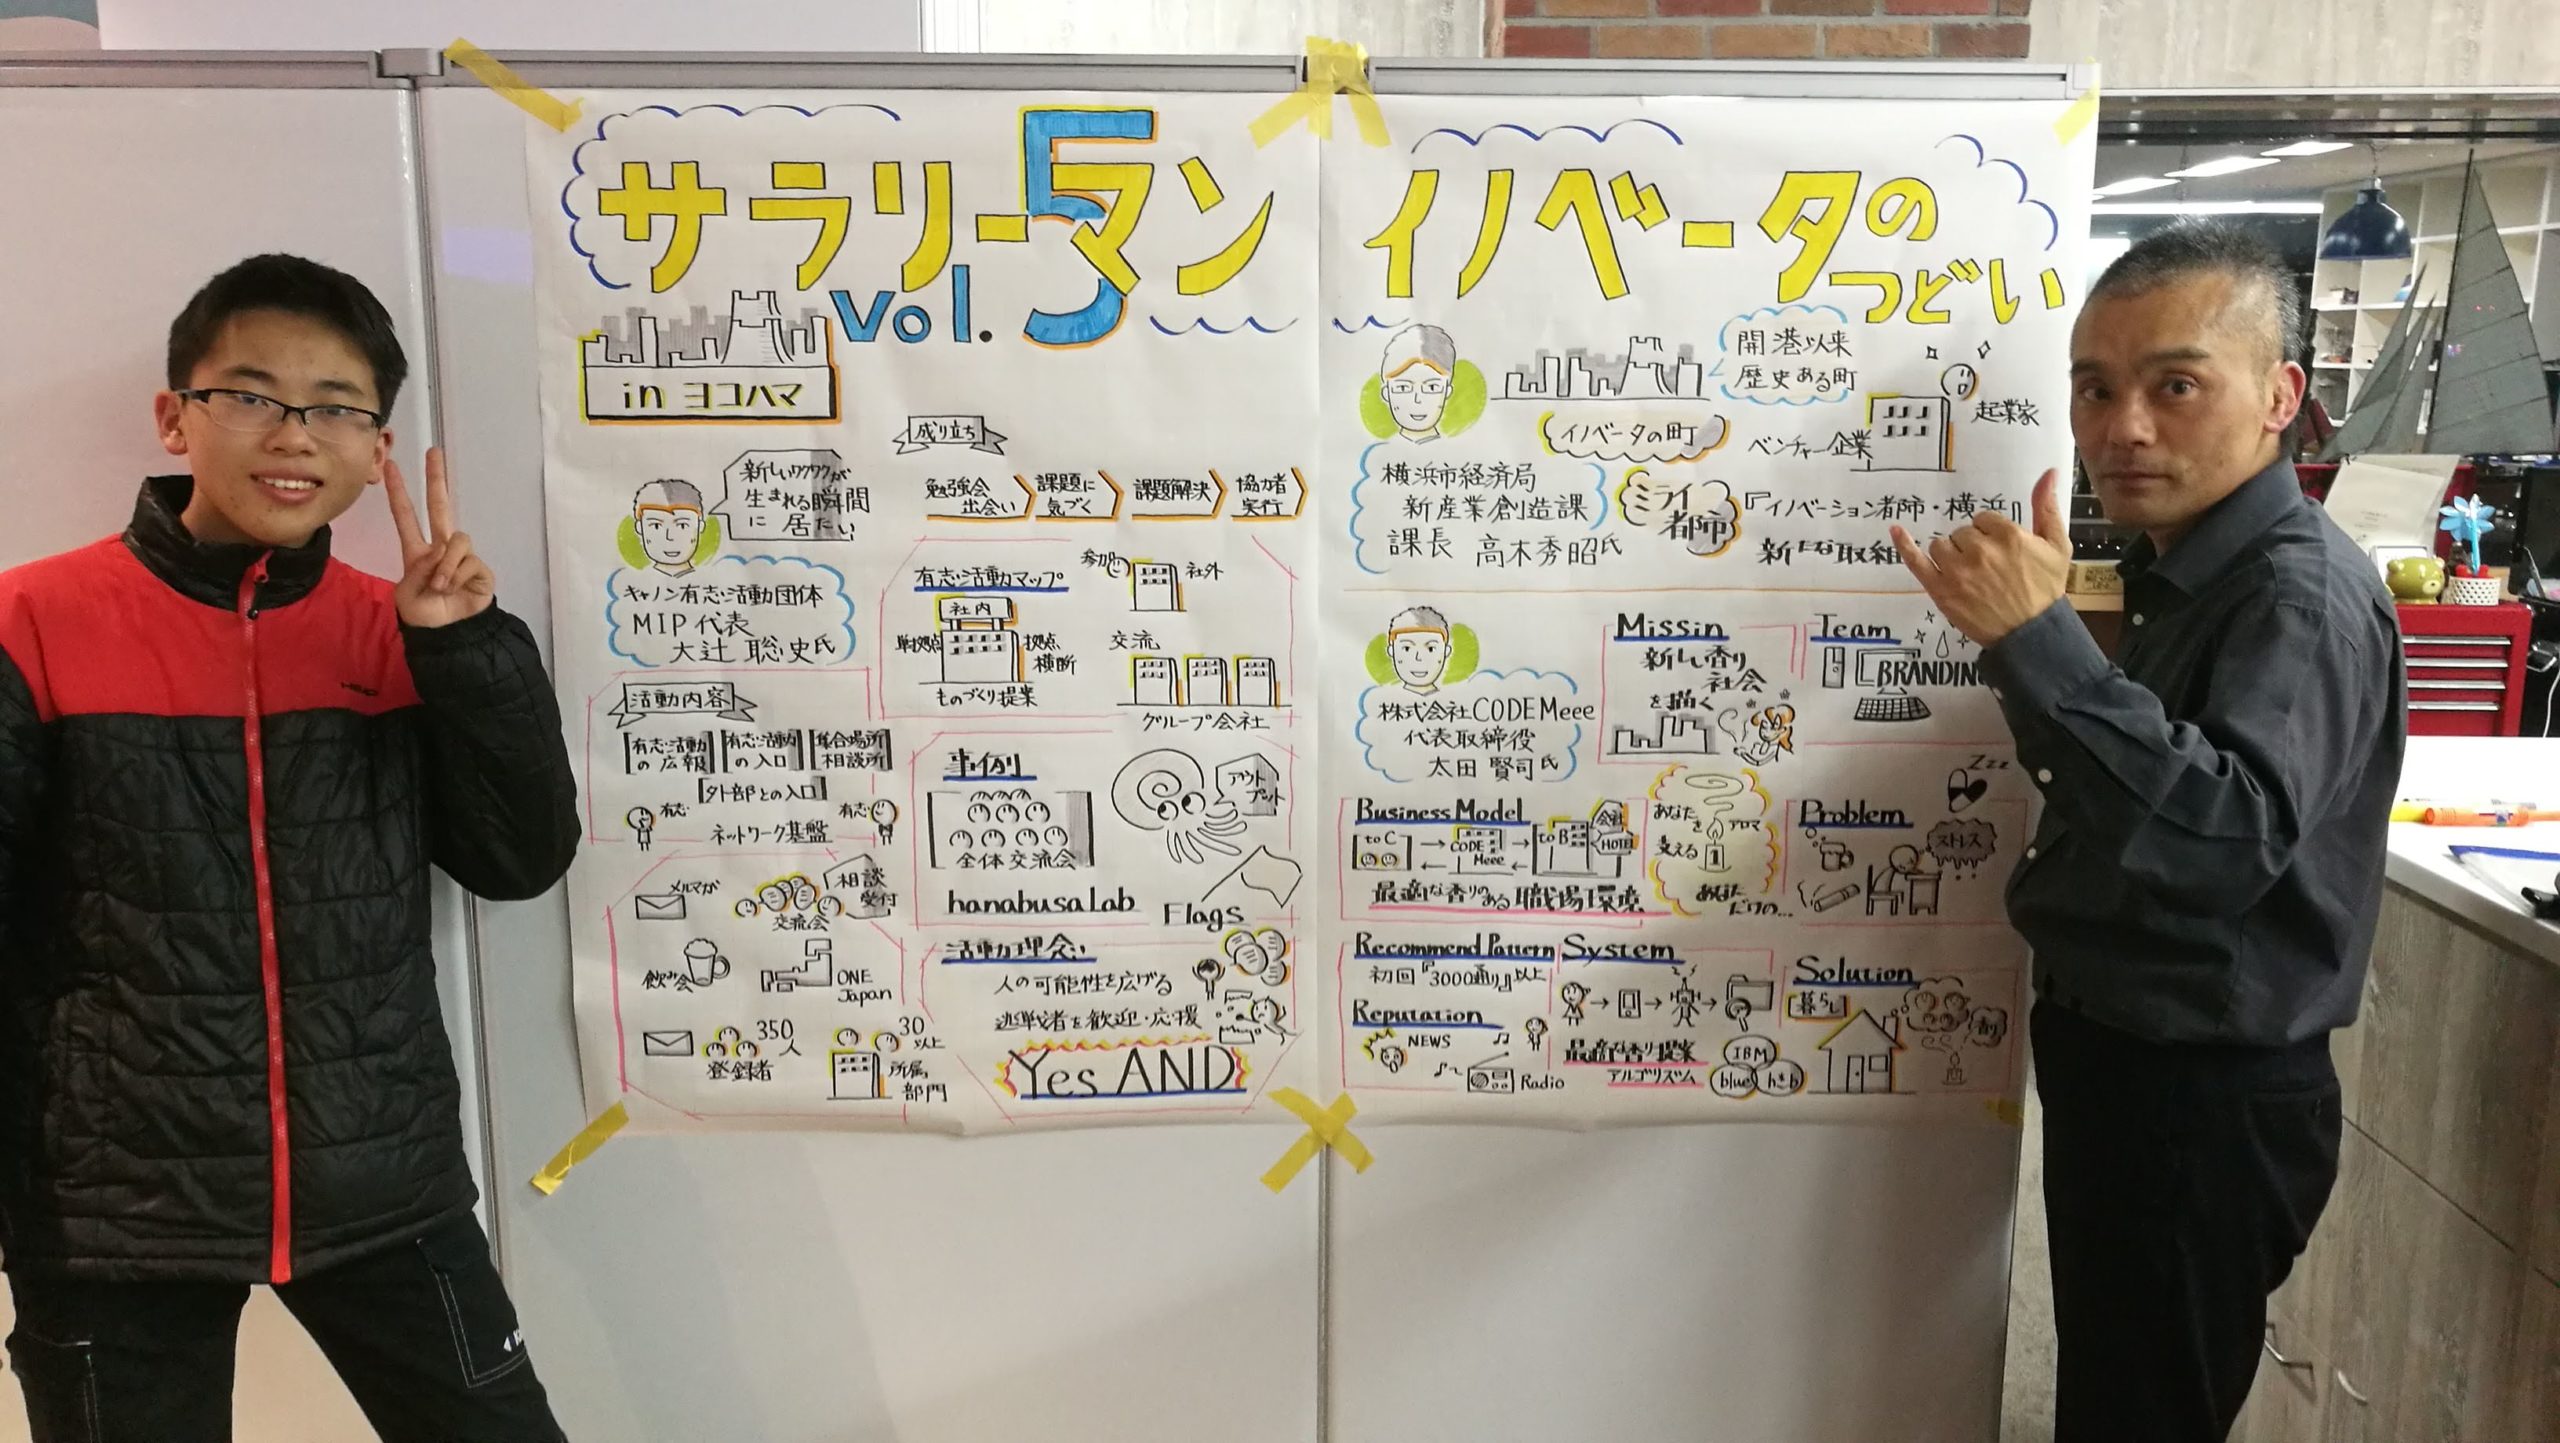 サラリーマン
Vol.5
イノベータの
つどい
in ヨコハマ
成り立ち
勉強会
出会い
課題に
気づく
課題解決
協力者
実行
新しいワクワクが
生まれる瞬間
に居たい
キャノン有志活動団体
MIP代表
大辻 聡史氏
有志活動マップ
社内
単拠点
拠点
横断
ものづくり提案
参加
社外
交流
グループ会社
活動内容
有志活動
の広報
有志活動
の入口
集合場所
相談所
外部との入口
有志
有志
ネットワーク基盤
メルマガ
交流会
相談
受付
飲み会
ONE
Japan
350
人
登録者
30
以上
所属
部門
事例
全体交流会
hanabusaLab
アウト
プット
Flags
活動理念
人の可能性を広げる
挑戦者を歓迎・応援
Yes AND
開港以来
歴史ある町
イノベータの町
ベンチャー企業
起業家
横浜市経済局
新産業創造課
課長 高木秀昭氏
ミライ
都市
『イノベーション都市・横浜』
新たな取組
株式会社CODE Meee
代表取締役
太田 賢司氏
Missin
新しい香り
社会
を描く
Team
BRANDIN
Business Model
to C
CODE
Meee
to B
会社
HOTEL
最適な香りのある職場環境
あなた
を
支える
アロマ
1
あなた
だけの...
Problem
Zzz
ストレス
Recommend Pattern
初回『3000通り』以上
Reputation
NEWS
Radio
System
最適な香り提案
アルゴリズム
IBM
blue
hub
Solution
暮らし
HEAD